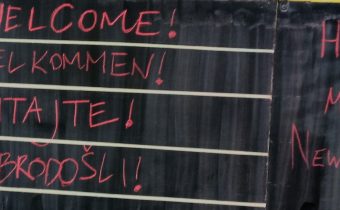 WELCOME!
VELKOMMEN!
VITAJTE!
DOBRODOŠLI!
New